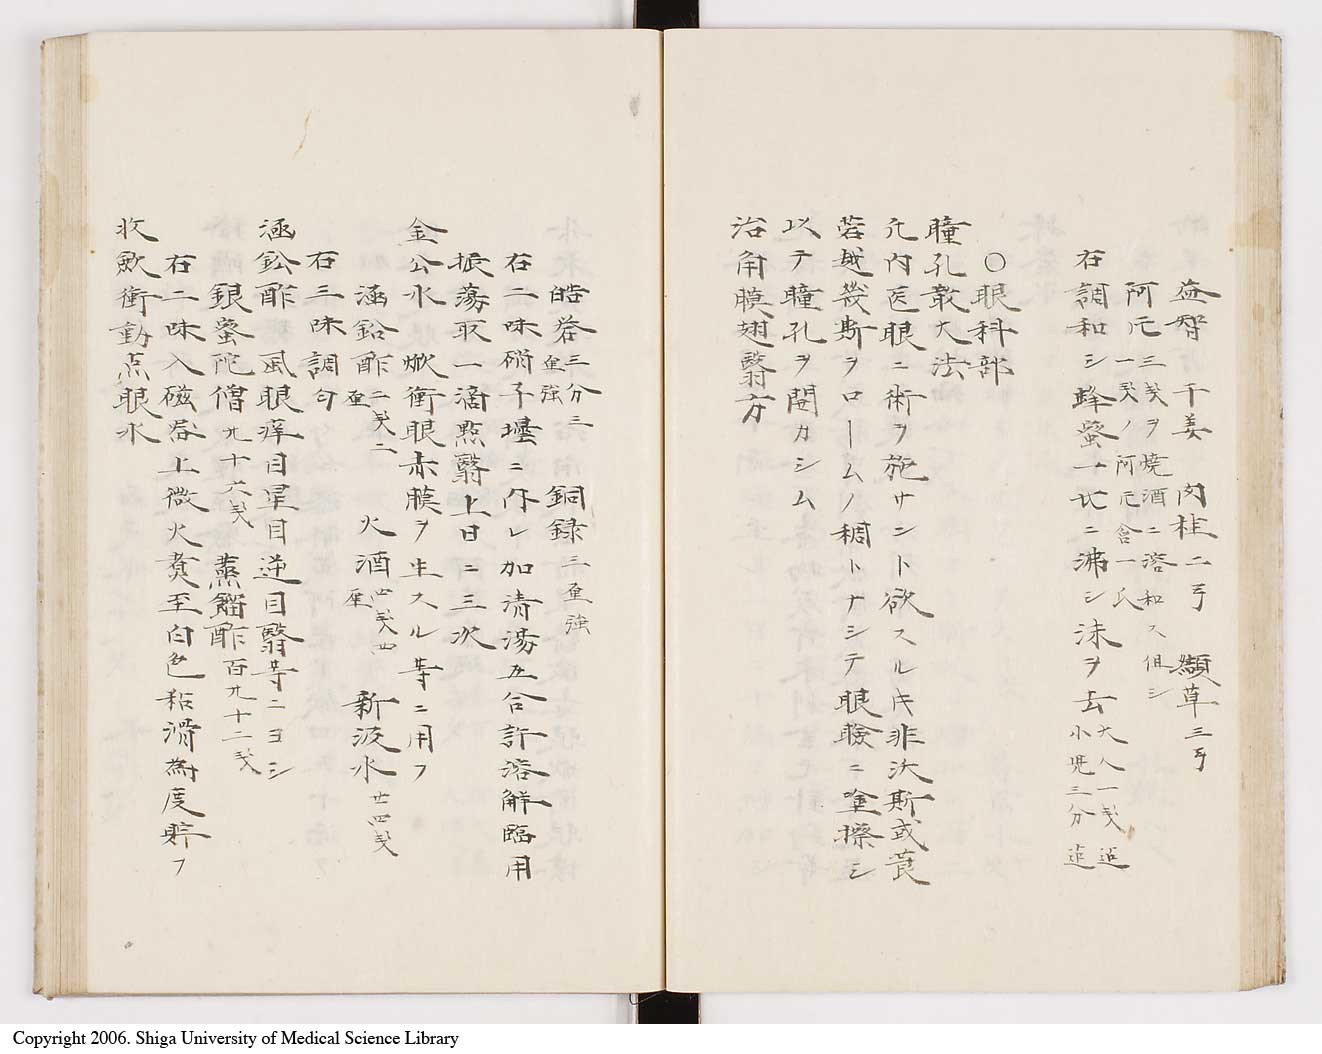 益智　干姜　肉桂二弓　纈草三弓
阿芫三戔ヲ焼酒ニ溶和ス但シ
一戔ノ阿芫含一氏
右調和シ蜂蜜一匕ニ沸シ沫ヲ去大人一戔迠
小児三分迠
〇眼科部
瞳孔散大法
凢内医眼ニ術ヲ施サントト欲スル片非沃斯或莨
菪越幾斯ヲロームノ稠トナシテ眼瞼ニ塗擦シ
以テ瞳孔ヲ開カシム
治角膜翅翳方
皓礬三分三厘強　銅録三厘強
右二味硝子壜ニ作レ加清湯五合許溶解臨用
振蕩取一滴點翳上日ニ三次
金公水　焮衝眼赤膜ヲ生スル等ニ用フ
涵鉛酢二戔一厘　火酒四戔四厘　新汲水廿四戔
右三味調匀
涵鈆酢　風眼痒目星目逆目翳等ニヨシ
銀蜜陀僧九十六戔　蒸餾酢百九十二戔
右二味入磁器上微火煑至白色粘滑為度貯フ
收歛衝動点眼水
Copyright 2006. Shiga University of Medical Science Library